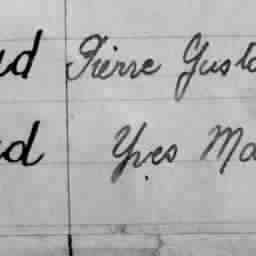 ud Pierre Gusta
ud Yves Ma